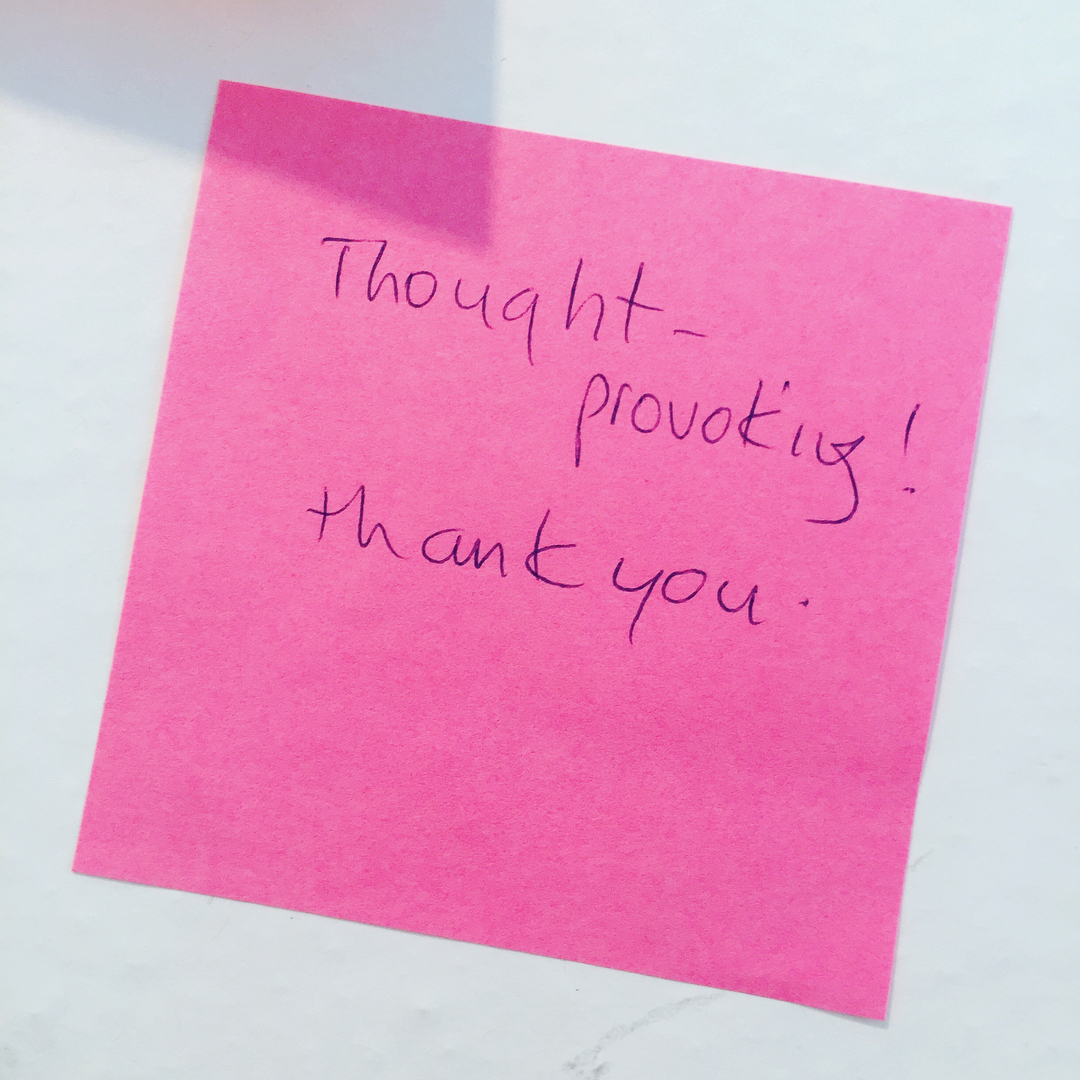 Thought-
provoking!
thank you.